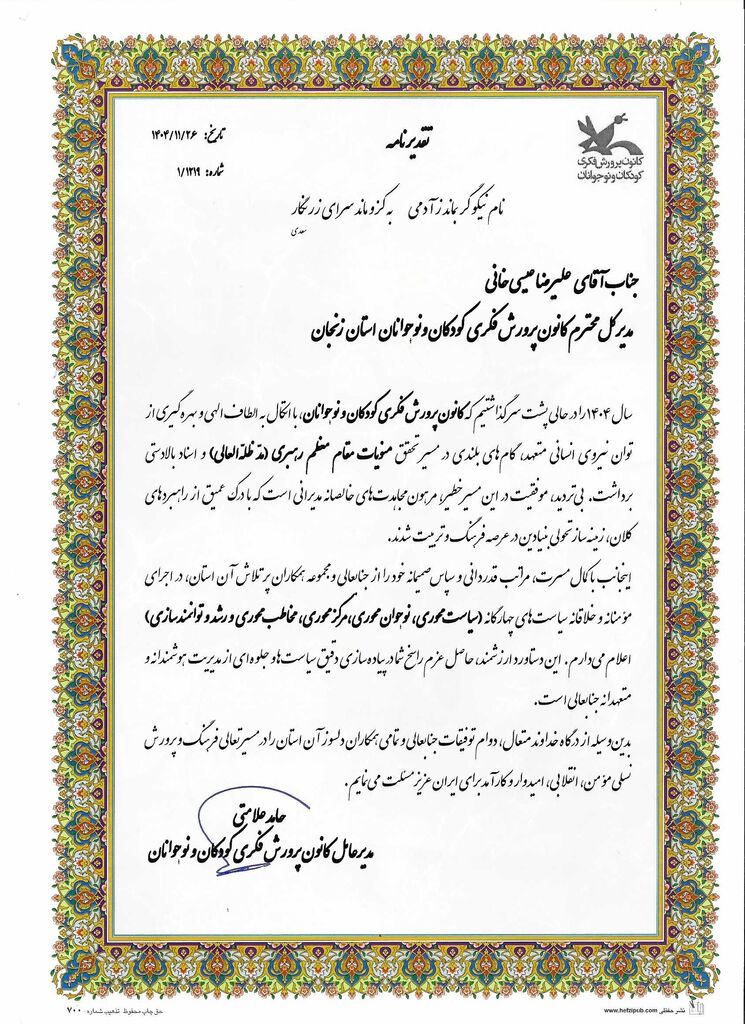 کانون پرورش فکری
کودکان و نوجوانان
تقدیرنامه
تاریخ: ۱۴۰۴/۱۱/۲۶
شماره: ۱/۱۲۱۹
نام نیکو گر بماند ز آدمی به کزو ماند سرای زرنگار
سعدی
جناب آقای علیرضا عیسی خانی
مدیر کل محترم کانون پرورش فکری کودکان و نوجوانان استان زنجان
سال ۱۴۰۴ را در حالی پشت سر گذاشتیم که کانون پرورش فکری کودکان و نوجوانان، با اتکال به الطاف الهی و بهره گیری از
توان نیروی انسانی متعهد، گام های بلندی در مسیر تحقق منویات مقام معظم رهبری (مدّ ظلّه العالی) و اسناد بالادستی
برداشت. بی تردید، موفقیت در این مسیر خطیر، مرهون مجاهدت های خالصانه مدیرانی است که با درک عمیق از راهبردهای
کلان، زمینه ساز تحولی بنیادین در عرصه فرهنگ و تربیت شدند.
اینجانب با کمال مسرت، مراتب قدردانی و سپاس صمیمانه خود را از جنابعالی و مجموعه همکاران پرتلاش آن استان، در اجرای
مؤمنانه و خلاقانه سیاست های چهارگانه (سیاست محوری، نوجوان محوری، مرکز محوری، مخاطب محوری و رشد و توانمندسازی)
اعلام می دارم. این دستاورد ارزشمند، حاصل عزم راسخ شما در پیاده سازی دقیق سیاست ها و جلوه ای از مدیریت هوشمندانه و
متعهدانه جنابعالی است.
بدین وسیله از درگاه خداوند متعال، دوام توفیقات جنابعالی و تمامی همکاران دلسوز آن استان را در مسیر تعالی فرهنگ و پرورش
نسلی مؤمن، انقلابی، امیدوار و کارآمد برای ایران عزیز مسئلت می نمایم.
حامد علامتی
مدیرعامل کانون پرورش فکری کودکان و نوجوانان
نشر حفظی www.hefzipub.com
حق چاپ محفوظ تذهیب شماره ۷۰۰